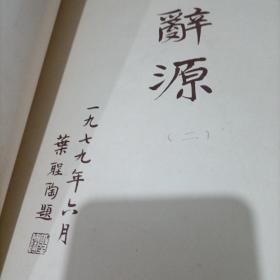 辭源
（二）
一九七九年六月
葉聖陶題